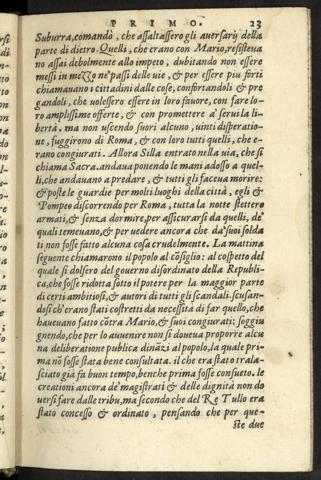 PRIMO. 23
Suburra, comandò, che assaltassero gli auersarij della
parte di dietro. Quelli, che erano con Mario, resisteua
no assai debolmente allo impeto, dubitando non essere
messi in mezzo ne' passi delle uie, & per essere piu forti
chiamauano i cittadini dalle case, confortandoli & pre
gandoli, che uolessero essere in loro fauore, con fare lo-
ro amplissime offerte, & con promettere a' serui la li-
bertà. ma non uscendo fuori alcuno, uinti disperatio-
ne, fuggirono di Roma, & con loro tutti quelli, che e-
rano congiurati. Allora Silla entrato nella uia, che si
chiama Sacra, andaua ponendo le mani adosso a quel-
li, che andauano a predare, & tutti gli faceua morire:
& poste le guardie per molti luoghi della città, egli &
Pompeo discorrendo per Roma, tutta la notte stettero
armati, & senza dormire, per assicurarsi da quelli, de'
quali temeuano, & per uedere ancora che da' suoi solda
ti non fosse fatto alcuna cosa crudelmente. La mattina
seguente chiamarono il popolo al cõsiglio: al cospetto del
quale si dolsero del gouerno disordinato della Republi-
ca, che fosse ridotta sotto il potere per la maggior parte
di certi ambitiosi, & autori di tutti gli scandali. scusan-
dosi ch'erano stati costretti da necessità di far quello, che
haueuano fatto cõtra Mario, & suoi congiurati: soggiu
gnendo, che per lo auuenire non si doueua proporre alcu
na deliberatione publica dināzi al popolo, la quale pri-
ma nõ fosse stata bene consultata. il che era stato trala-
sciato già fu buon tempo, benche prima fosse consueto. le
creationi ancora de' magistrati & delle dignità non do
uersi fare dalle tribu, ma secondo che del Re Tullo era
stato concesso & ordinato, pensando che per que-
ste due